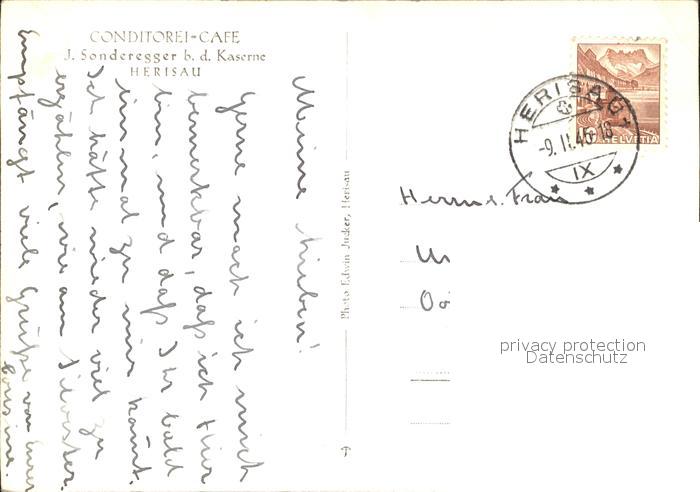 CONDITOREI-CAFE
J. Sonderegger b. d. Kaserne
HERISAU
Meine Lieben!
Gerne mach ich mich
bemerkbar, daß ich hier
bin, und daß Ihr bald
einmal zu mir kömt.
Ich hätte wieder viel zu
erzählen, wie am Silvester.
Empfängt viele Grüße von Eurer
Cousine.
Photo Edwin Jucker, Herisau
HERISAU
-9. II. 45-18
IX
HELVETIA
Herrn u. Frau
privacy protection
Datenschutz